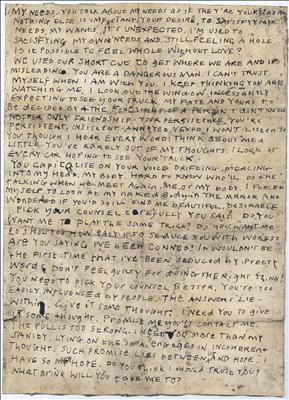 MY NEEDS. YOU TALK ABOUT MY NEEDS AS IF THEY'RE YOUR
NOTHING ELSE IS IMPORTANT. YOUR DESIRE, TO SATISFY MY
NEEDS, MY WANTS. IT'S UNEXPECTED. I'M USED TO
SATISFYING MY OWN NEEDS AND STILL FEELING A HOLE
IS IT POSSIBLE TO FEEL WHOLE WITHOUT LOVE?
WE USED OUR SHORT CUT TO GET WHERE WE ARE AND IT'S
MISLEADING. YOU ARE A DANGEROUS MAN. I CAN'T TRUST
MYSELF WHEN I AM WITH YOU. I KEEP THINKING YOU ARE
WATCHING ME. I LOOK OUT THE WINDOW, INCESSANTLY
EXPECTING TO SEE YOUR TRUCK. MY FATE AND YOURS TO
BE DECIDED BY THE OF A PERSON I DON'T KNOW
OFFER ONLY FRIENDSHIP. YOUR PERSISTENCE, YOU'RE
PERSISTENT, INSISTENT. ANNOYED, VEXED, I WON'T LISTEN TO
YOU THOUGH I HEAR EVERY WORD. THINK ABOUT ME A
LITTLE. YOU'RE RARELY OUT OF MY THOUGHTS. I LOOK AT
EVERY CAR HOPING TO SEE YOUR TRUCK.
YOU CAPITALISE ON YOUR VOICE DRIFTING, PIERCING
INTO MY HEAD, MY BODY. HARD TO KNOW WHO'LL DO THE
TALKING WHEN WE MEET AGAIN. ME OR MY BODY. I FORCED
MYSELF TO LOOK AT MY NAKED BODY IN THE MIRROR AND
WONDERED IF YOU'D STILL FIND ME BEAUTIFUL, DESIRABLE.
PICK YOUR COUNSEL CAREFULLY YOU SAID. DO YOU
WANT ME TO PLAY THE SAME TRICK? DO YOU WANT ME
TO SHOW YOU HOW EASY IT IS TO SEDUCE YOU WITH WORDS?
ARE YOU SAYING I'VE BEEN CONNED? IT WOULDN'T BE
THE FIRST TIME THAT I'VE BEEN SEDUCED BY PRETTY
WORDS. DON'T FEEL GUILTY FOR DOING THE RIGHT THING.
YOU NEED TO PICK YOUR COUNSEL BETTER. YOU'RE TOO
EASILY INFLUENCED BY PEOPLE. THE ANSWERS LIE
WITHIN. GIVE IT SOME THOUGHT. I NEED YOU TO GIVE
IT SOME THOUGHT. PROMISE ME YOU'LL CONTACT ME.
THE PULL IS TOO STRONG. I NEED YOU MORE THAN MY
SANITY. LYING ON THE SOFA, ENGAGED IN INCOHERENT
THOUGHT. SUCH PROMISE LIES BETWEEN, AND HOPE. I
HAVE SOME HOPE. DO YOU THINK I SHOULD TRUST YOU?
WHAT BRINK WILL YOU TAKE ME TO?